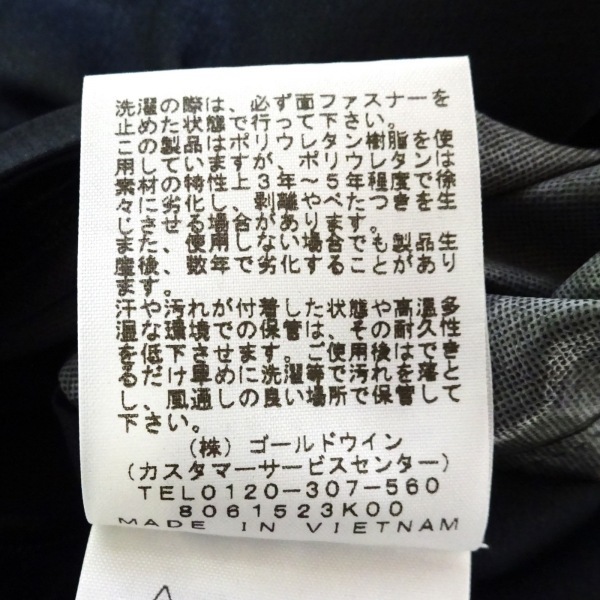 洗濯の際は、必ず面ファスナーを
止めた状態で行って下さい。
この製品はポリウレタン樹脂を使
用していますが、ポリウレタンは
素材の特性上3年～5年程度で徐
々に劣化し、剥離やべたつきを生
じさせる場合があります。
また、使用しない場合でも製品生
産後、数年で劣化することがあり
ます。
汗や汚れが付着した状態や高温多
湿な環境での保管は、その耐久性
を低下させます。ご使用後はでき
るだけ早めに洗濯等で汚れを落と
し、風通しの良い場所で保管して
下さい。
(株) ゴールドウイン
(カスタマーサービスセンター)
TEL0120-307-560
8061523K00
MADE IN VIETNAM